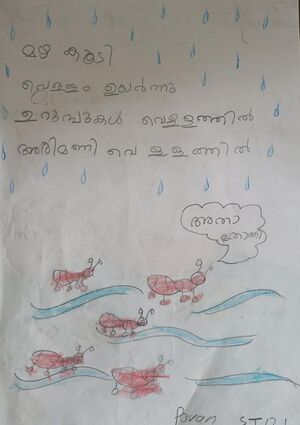 മഴ കൂടി
വെള്ളം ഉയർന്നു
ഉറുമ്പുകൾ വെള്ളത്തിൽ
അരിമണി വെള്ളത്തിൽ
അതാ
തോണി
Pavan STD 1